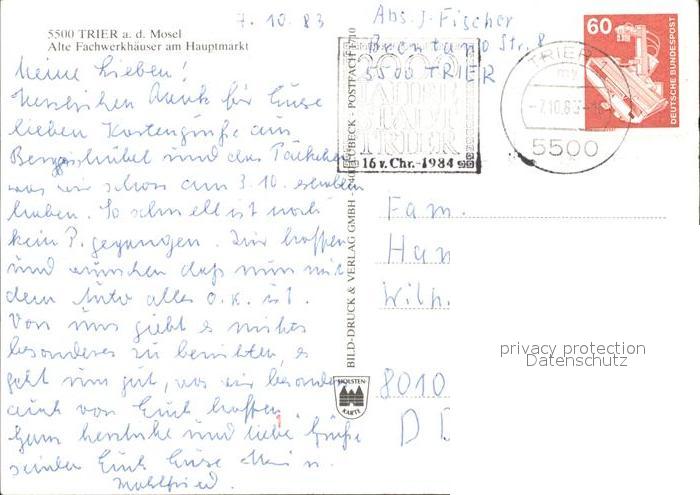 7. 10. 83
Abs. J. Fischer
Brentano Str. 8
5500 TRIER
5500 TRIER a. d. Mosel
Alte Fachwerkhäuser am Hauptmarkt
Meine Lieben!
Herzlichen Dank für Eure
lieben Kartengrüße aus
und das Päckchen
was wir schon am 3.10. erhalten
haben. So schnell ist noch
kein P. gegangen. Wir hoffen
und wünschen daß nun mit
dem Auto alles o.k. ist.
Von uns giebt es nichts
besonderes zu berichten, es
geht uns gut, was wir besonders
auch von Euch hoffen.
Ganz herzliche und liebe Grüße
senden Euch Eure
BILD-DRUCK & VERLAG GMBH - 2400 LÜBECK - POSTFACH 1710
HOLSTEN-
KARTE
2000
JAHRE
TRIER
16 v. Chr.-1984
TRIER 1
-7.10.83-
5500
60
DEUTSCHE BUNDESPOST
Fam.
Han
Wilh.
8010
DD
privacy protection
Datenschutz